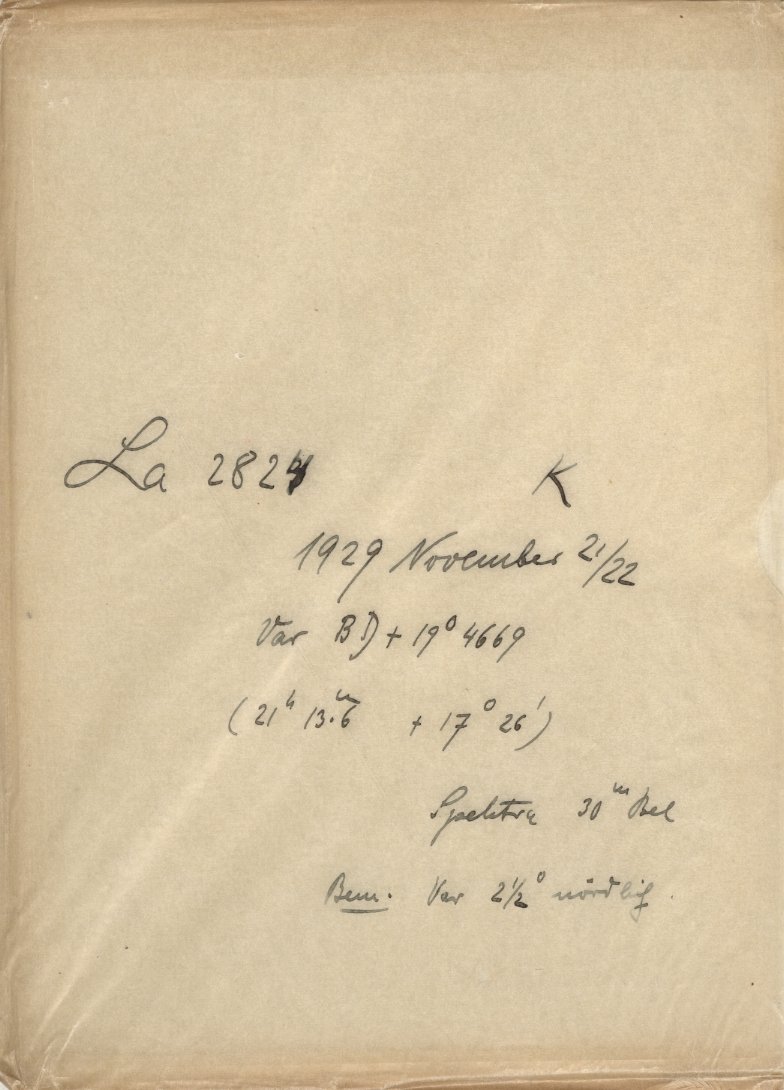 La 2824 K
1929 November 21/22
Var BD + 19° 4669
(21ʰ 13.ᵐ6 + 17° 26')
Spektra 30ᵐ Bel
Bem. Var 2½° nördlich